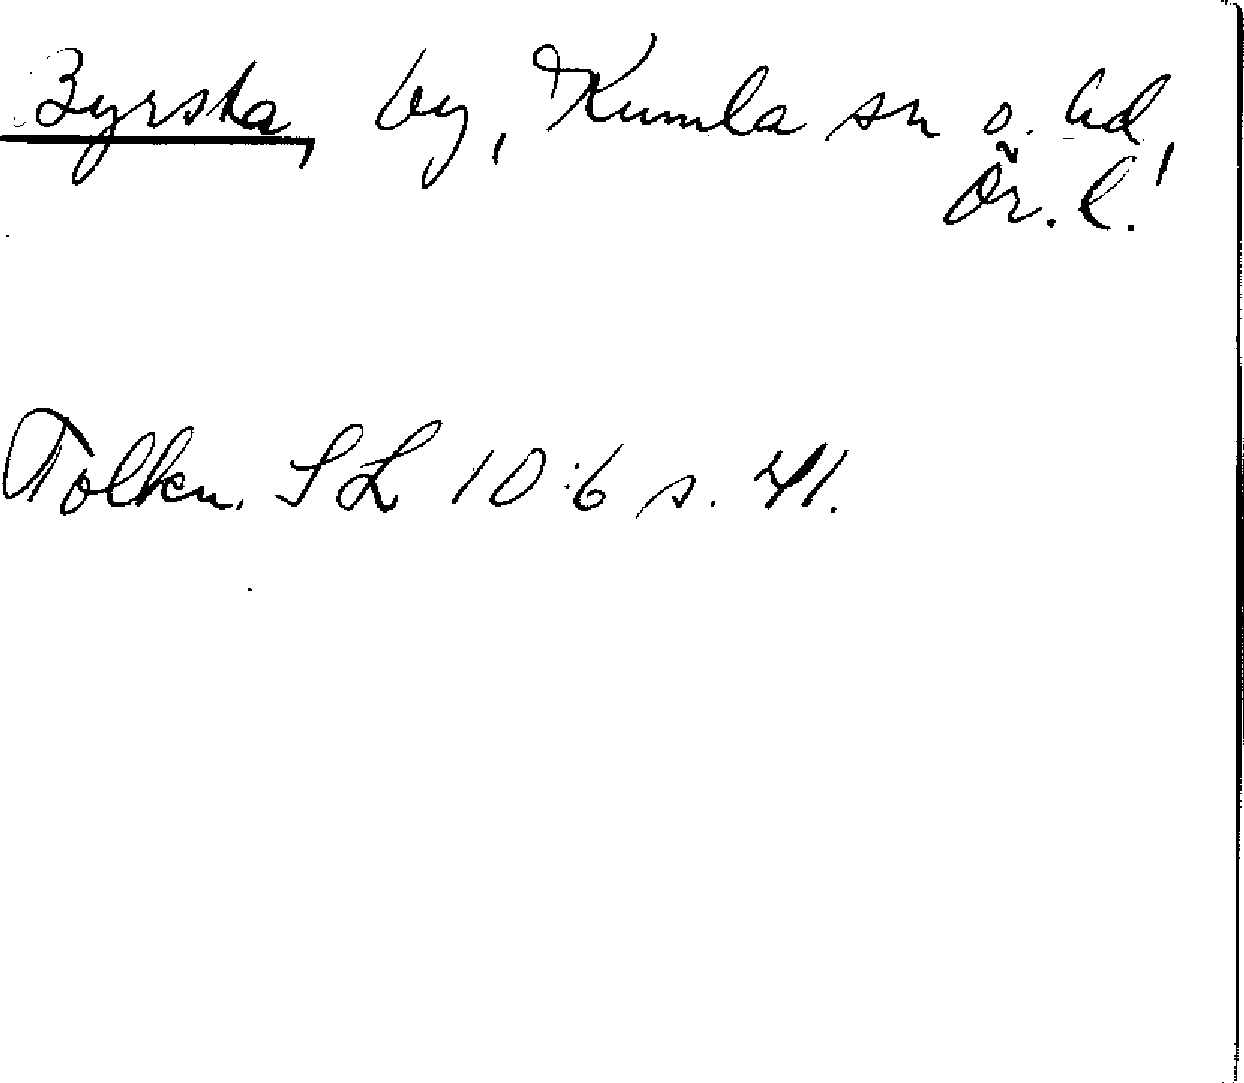 Byrsta, by, Kumla sn o. hd,
Ör. l.
Tolkn. SL 10:6 s. 41.